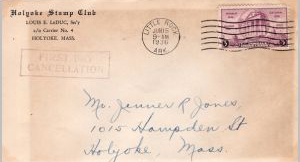 Holyoke Stamp Club
LOUIS E. LaDUC, Sec'y
c/o Carrier No. 4
HOLYOKE, MASS.
LITTLE ROCK
JUN 15
9-AM
1936
ARK.
3 3
FIRST DAY
CANCELLATION
Mr. James R Jones,
1015 Hampden St
Holyoke, Mass.